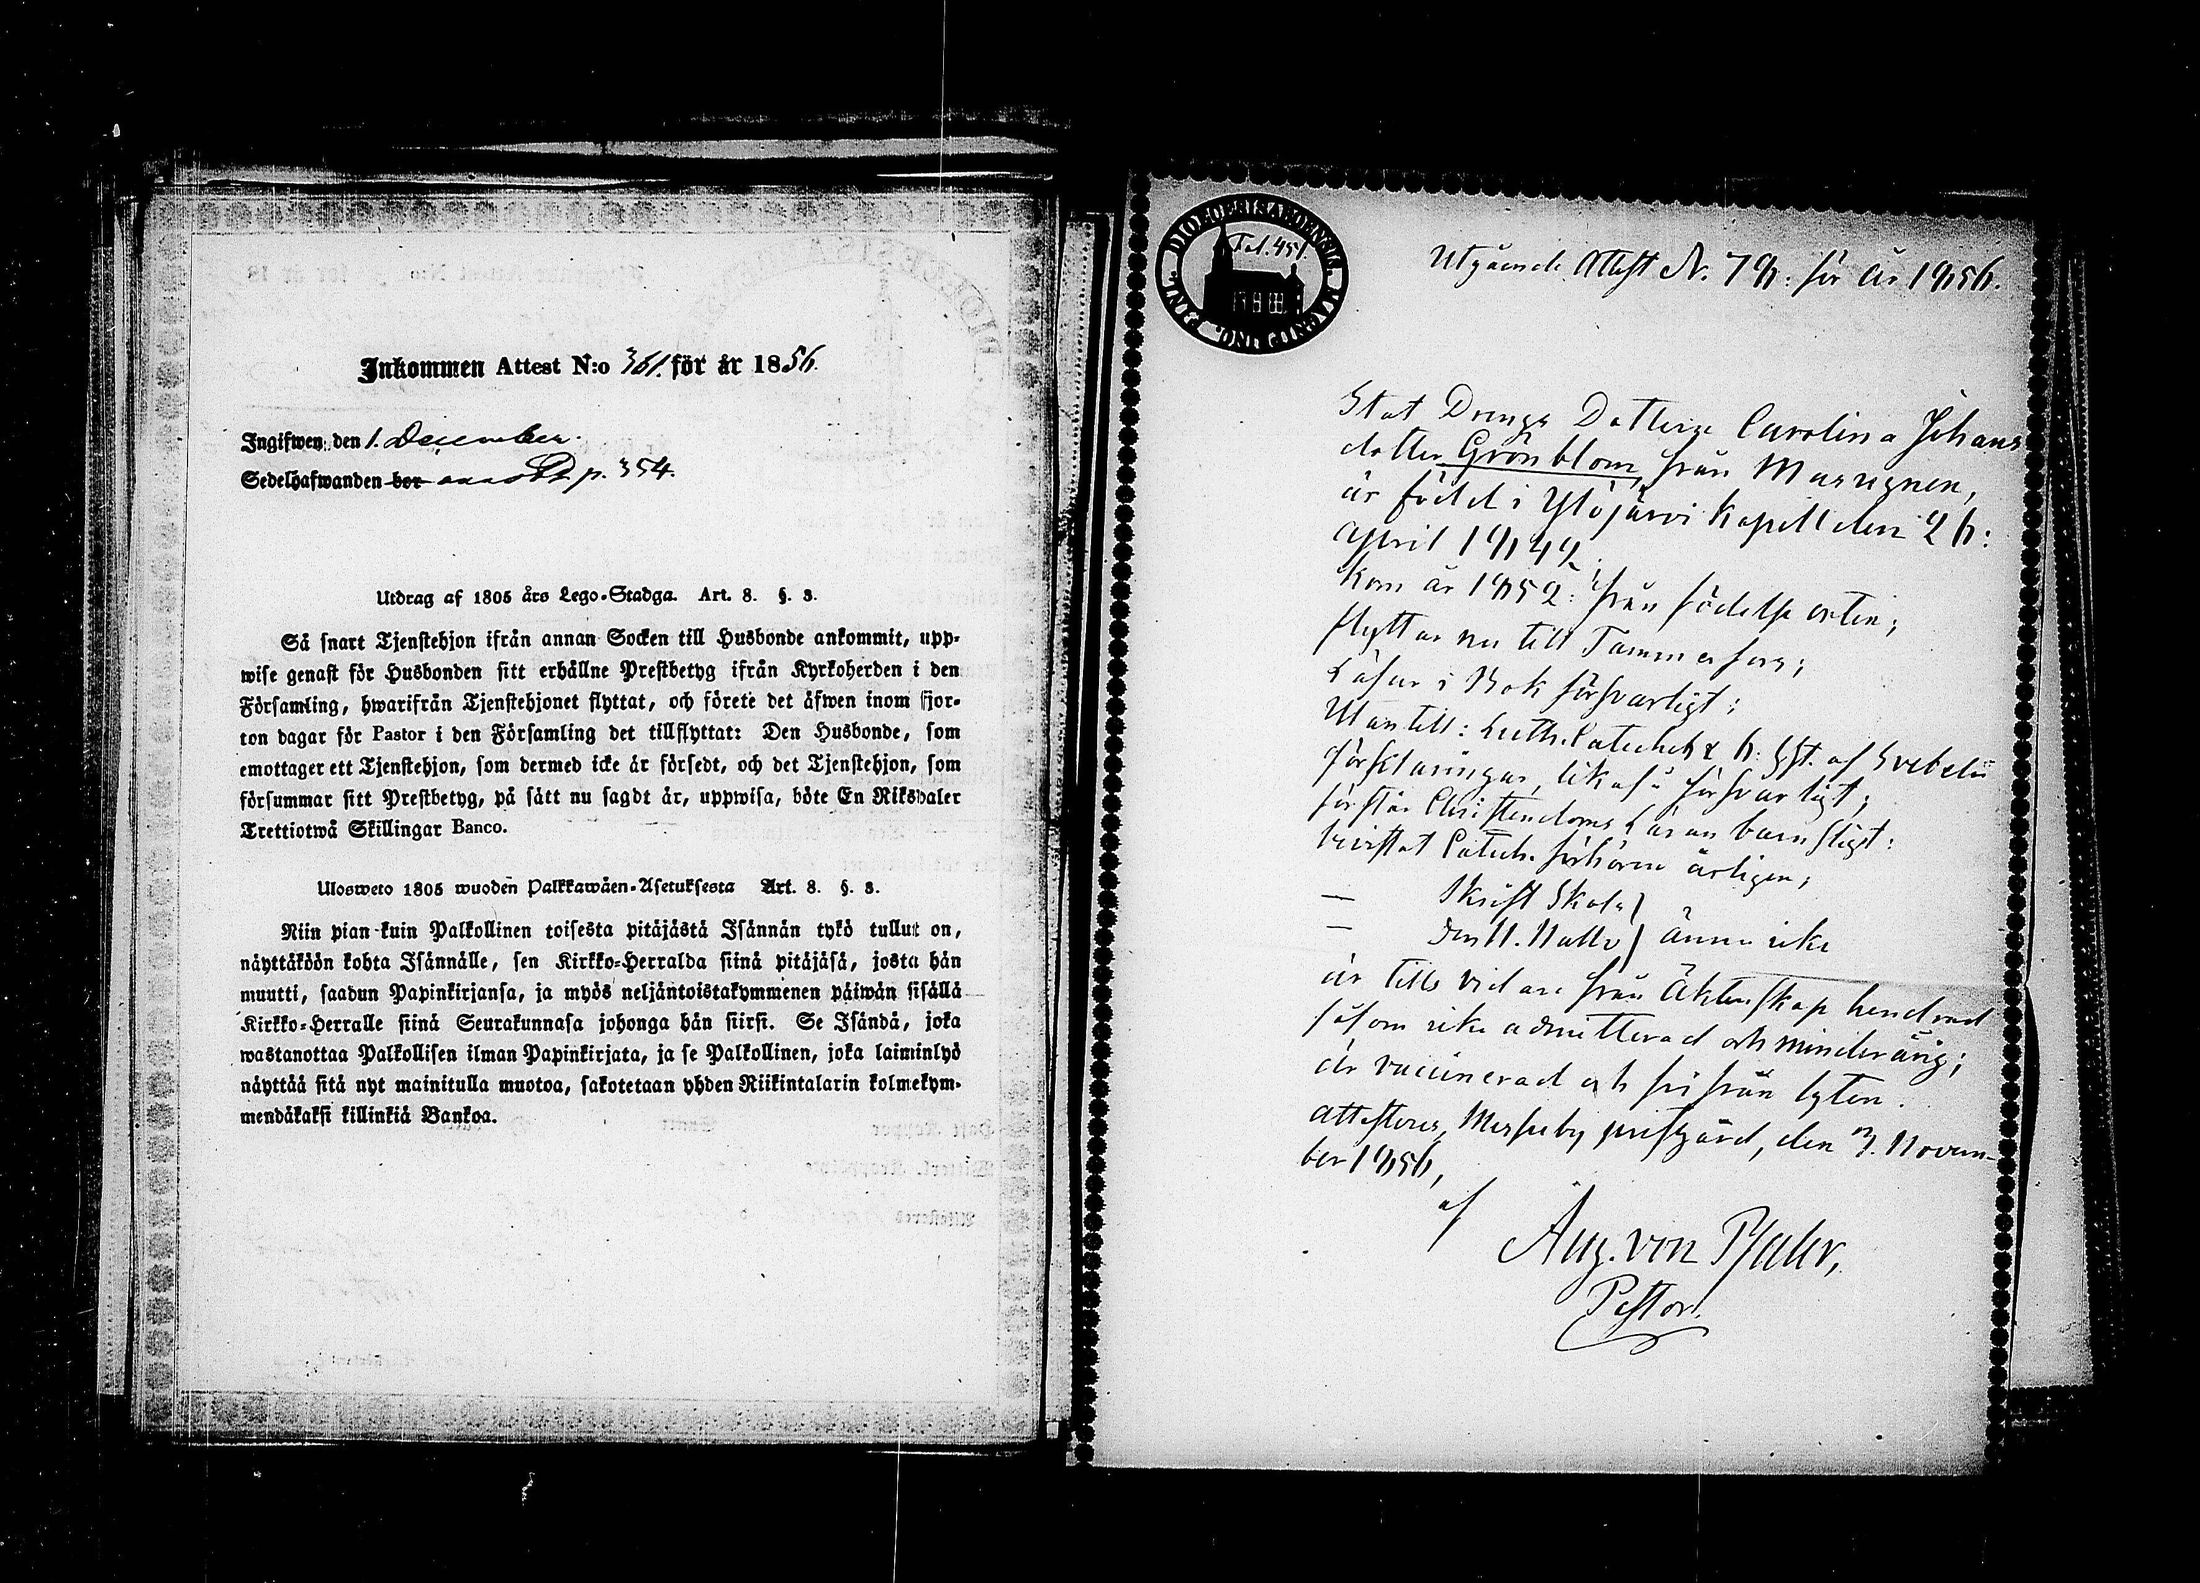 Inkommen Attest N:o 361. för år 1856.
Ingifwen den 1. December.
Sedelhafwanden bor p. 354.
Utdrag af 1805 års Lego-Stadga. Art. 8. §. 3.
Så snart Tjenstehjon ifrån annan Socken till Husbonde ankommit, upp-
wise genast för Husbonden sitt erhållne Prestbetyg ifrån Kyrkoherden i den
Församling, hwarifrån Tjenstehjonet flyttat, och förete det äfwen inom fjor-
ton dagar för Pastor i den Församling det tillflyttat: Den Husbonde, som
emottager ett Tjenstehjon, som dermed icke är försedt, och det Tjenstehjon, som
försummar sitt Prestbetyg, på sätt nu sagdt är, uppwisa, böte En Riksdaler
Trettiotwå Skillingar Banco.
Ulosweto 1805 wuoden Palkkawäen-Asetuksesta Art. 8. §. 3.
Niin pian kuin Palkollinen toisesta pitäjästä Isännän tykö tullut on,
näyttäköön kohta Isännälle, sen Kirkko-Herralda siinä pitäjäsä, josta hän
muutti, saadun Papinkirjansa, ja myös neljäntoistakymmenen päiwän sisällä
Kirkko-Herralle siinä Seurakunnasa johonga hän siirsi. Se Isändä, joka
wastanottaa Palkollisen ilman Papinkirjata, ja se Palkollinen, joka laiminlyö
näyttää sitä nyt mainitulla muotoa, sakotetaan yhden Riikintalarin kolmekym-
mendäkaksi killinkiä Bankoa.
DIOECESIS ABOENSIS. MAGNI DUC. FINL.
Fol. 451.
Utgående Attest N. 78: för år 1856.
Stat Drengs Dotteren Carolina Johans
dotter Grönblom, från
är född i Ylöjärvi Kapell den 26:
April 1842;
Kom år 1852: från födelse orten;
flyttar nu till Tammerfors;
Läser i Bok försvarligt;
Utantill: Luth. Catechek & h. Sst. af Svebelii
förklaringar, likaså försvarligt;
förstår Christendoms Läran barnsligt:
bevistat Catech. förhören årligen;
— Skrift Skola }
— Den H. Nattv } ännu icke
är tills vidare från Äktenskap hindrad
såsom icke admitterad och minderårig;
är vaccinerad och fri från lyten.
Attesteras, Messuby prestgård, den 7. Novem-
ber 1856,
af
Aug. von Pfaler,
Pastor.